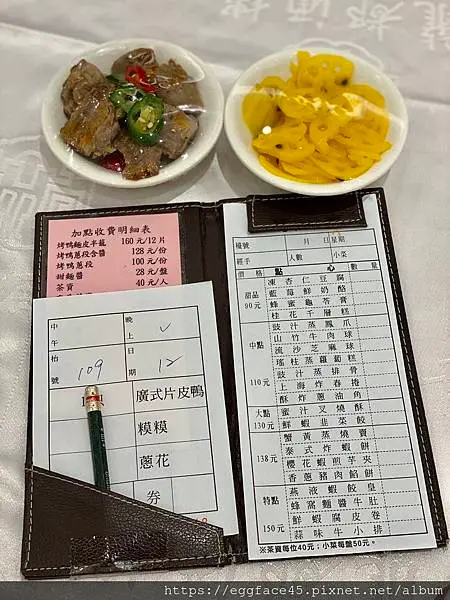 加點收費明細表
烤鴨麵皮半籠 160元/12片
烤鴨蔥段含醬 128元/份
烤鴨蔥段 100元/份
甜麵醬 28元/盤
茶資 40元/人
中午
晚上 ✓
枱號 109
日期 12
廣式片皮鴨
糗糗
蔥花
券
檯號 月 日 星期
經手 人數 小菜
價格 點心 數量
甜品 90元
凍杏仁豆腐
藍莓鮮奶酪
蜂蜜龜苓膏
桂花千層糕
中點 110元
豉汁蒸鳳爪
山竹牛肉球
流沙芝麻球
瑤柱蒸蘿蔔糕
豉汁蒸排骨
上海炸春捲
酥炸蔥油角
大點 130元
蜜汁叉燒酥
鮮蝦韭菜餃
138元
蟹黃蒸燒賣
泰式炸蝦餅
櫻花蝦煎芋夾
香蔥豬肉餡餅
特點 150元
燕液蝦餃皇
蜂窩麵醬牛肚
鮮蝦腐皮卷
蒜味牛小排
※茶資每位40元；小菜每盤50元。
https://eggface45.pixnet.net/album